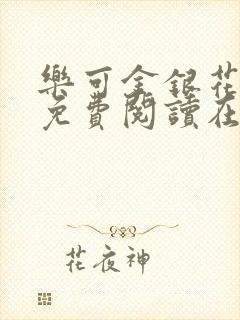 樂可金銀花
免費閱讀在
花夜神